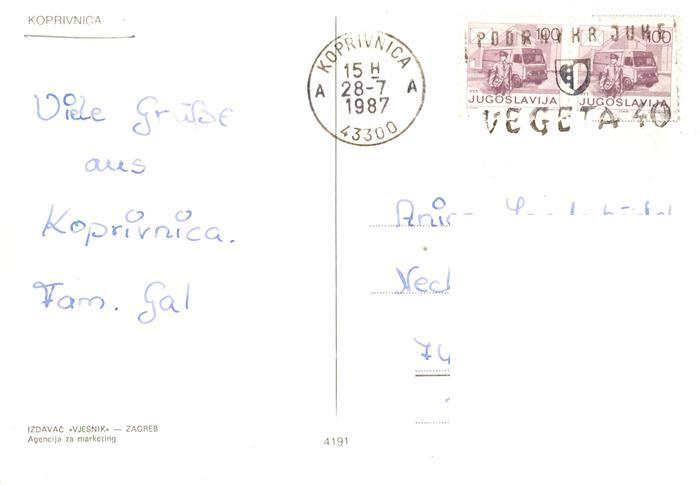 KOPRIVNICA
Viele Grüße
aus
Koprivnica.
Fam. Gal
IZDAVAČ «VJESNIK» — ZAGREB
Agencija za marketing
4191
KOPRIVNICA
15 H
A 28-7 A
1987
43300
PODRAVKA JUHE
100 100
JUGOSLAVIJA JUGOSLAVIJA
VEGETA 40
74